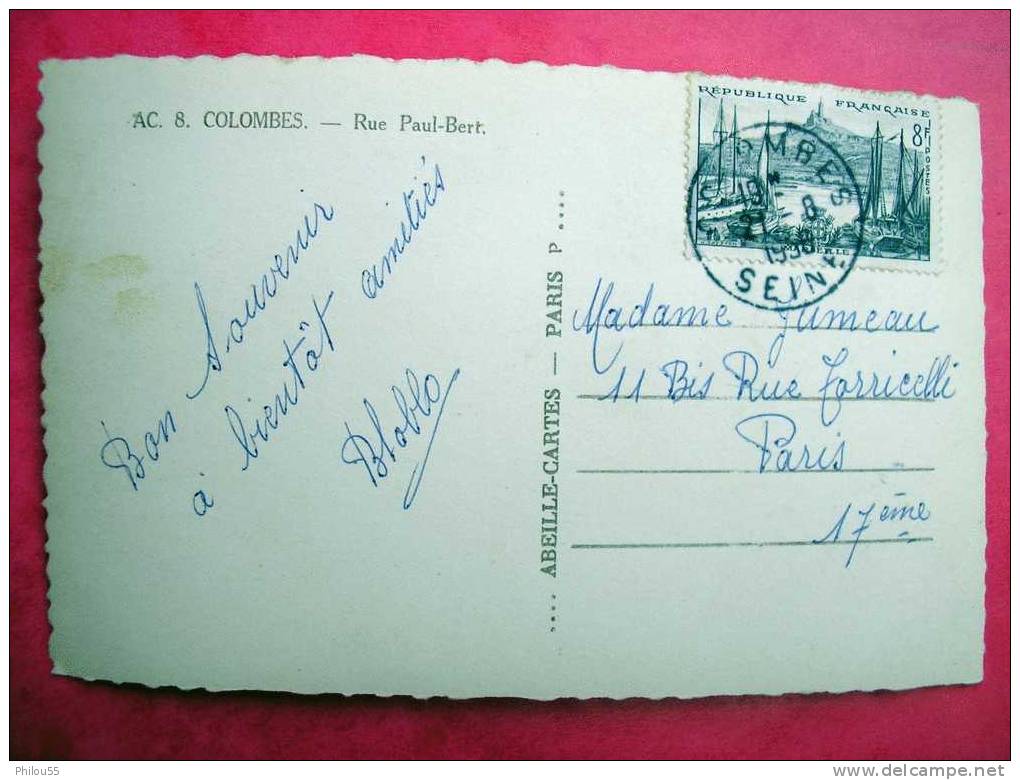 AC. 8. COLOMBES. — Rue Paul-Bert.
Bon Souvenir
à bientôt amitiés
Bloblo
.... ABEILLE-CARTES — PARIS P ....
RÉPUBLIQUE FRANÇAISE
8F
POSTES
COLOMBES
19H
8
SEINE
Madame Jumeau
11 Bis Rue Torricelli
Paris
17ème
Philou55
www.delcampe.net